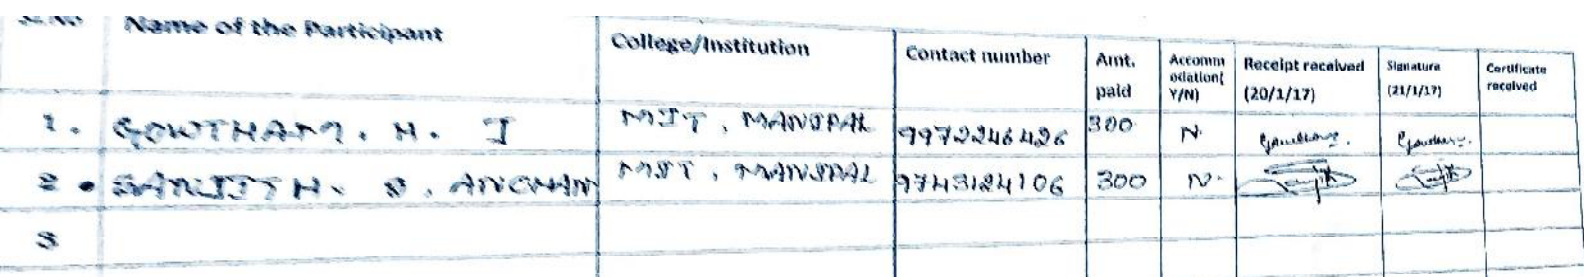 Sl.No Name of the Participant College/Institution Contact number Amt. paid Accomm odation( Y/N) Receipt received (20/1/17) Signature (21/1/17) Certificate received
1. GOWTHAM. H. J MIT, MANIPAL 9972246426 300 N. Gowtham. Gowtham.
2. SANJITH. S. ANCHAN MIT, MANIPAL 9743124106 300 N.
3